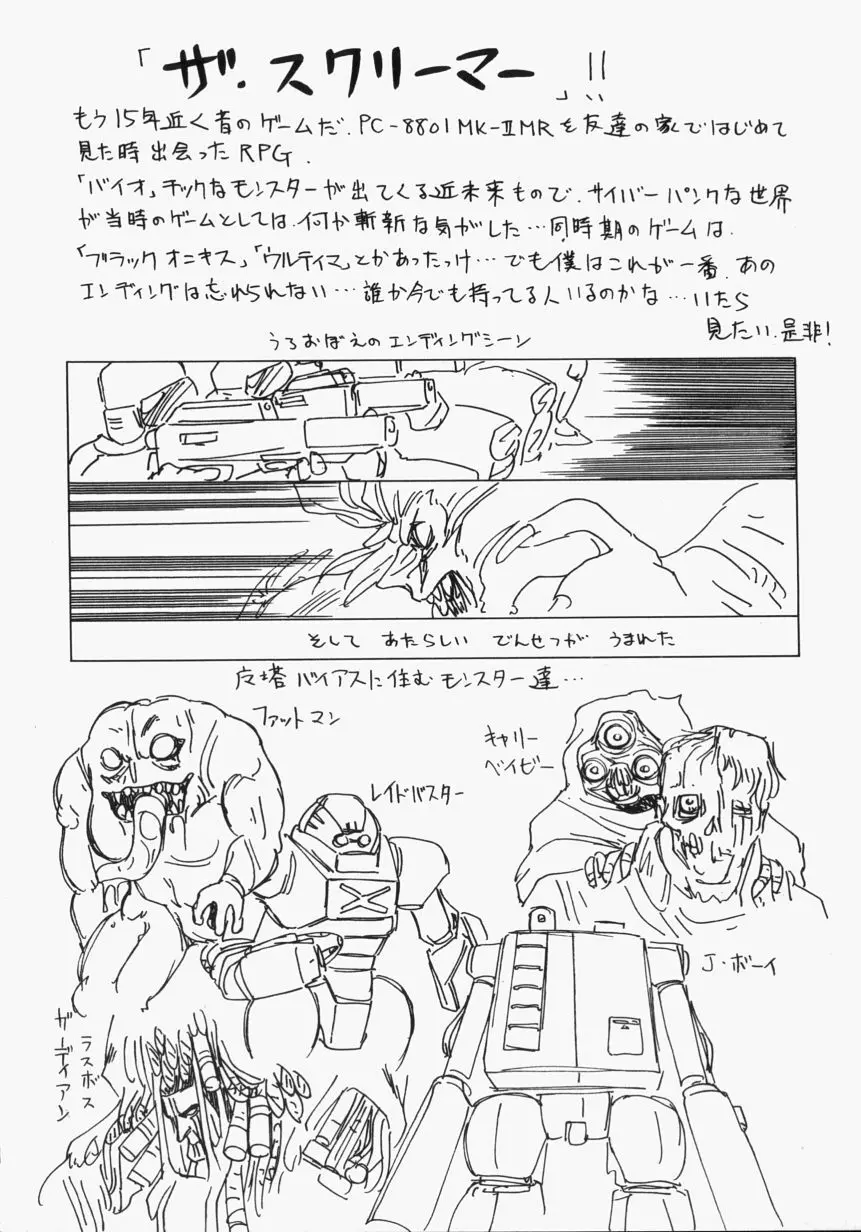 「ザ・スクリーマー」!!
もう15年近く昔のゲームだ. PC-8801MK-ⅡMRを友達の家ではじめて
見た時出会ったRPG.
「バイオ」チックなモンスターが出てくる近未来もので、サイバーパンクな世界
が当時のゲームとしては、何か斬新な気がした…同時期のゲームは、
「ブラックオニキス」「ウルティマ」とかあったっけ…でも僕はこれが一番、あの
エンディングは忘れられない…誰か今でも持ってる人いるのかな…いたら
見たい.是非!
うろおぼえのエンディングシーン
そして あたらしい でんせつが うまれた
反塔バイアスに住むモンスター達…
ファットマン
キャリー
ベイビー
レイドバスター
J・ボーイ
ラスボス
ガーディアン